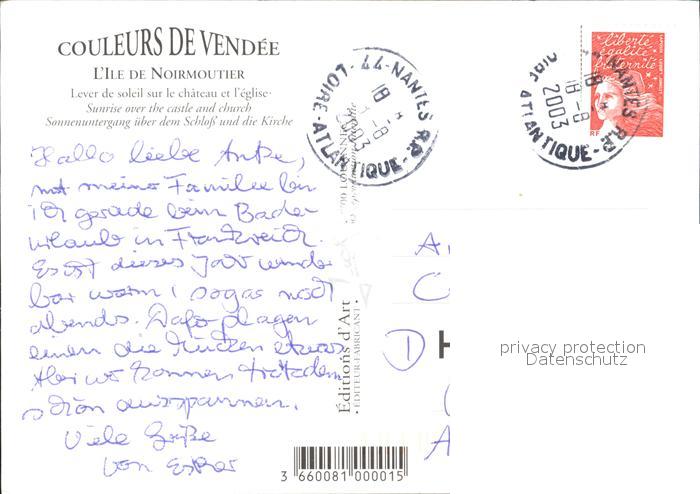 COULEURS DE VENDÉE
L'ILE DE NOIRMOUTIER
Lever de soleil sur le château et l'église
Sunrise over the castle and church
Sonnenuntergang über dem Schloß und die Kirche
Hallo liebe Anke,
mit meine Familie bin
ich gerade beim Bade-
urlaub in Frankreich.
Es ist dieses Jahr wunder-
bar warm, sogar noch
abends. Dafür plagen
einen die Mücken etwas
Aber wir können trotzdem
schön ausspannen.
Viele Grüße
von Esther
Editions d'Art
ÉDITEUR-FABRICANT
3 660081 000015
44-NANTES R.P.
18 H
1-8
2003
LOIRE-ATLANTIQUE
liberté
égalité
fraternité
RF
NANTES R.P.
18 H
-8
2003
ATLANTIQUE
A
C
D H
A
privacy protection
Datenschutz